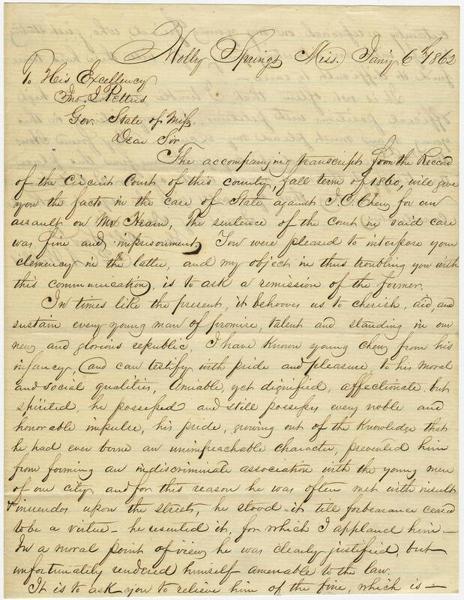 Holly Springs, Miss. Jan'y 6th 1862
To His Excellency
Jno. J. Pettus
Gov. State of Miss
Dear Sir
The accompanying transcript from the Record
of the Circuit Court of this county, fall term of 1860, will give
you the facts in the case of State against J. C. Chew for an
assault on Mr Hearn, The sentence of the Court in said case
was fine and imprisonment, You were pleased to interpose your
clemency in the latter, and my object in thus troubling you with
this communication, is to ask a remission of the former.
In times like the present, it behooves us to cherish, aid and
sustain every young man of promise, talent and standing in our
new and glorious republic, I have known young Chew from his
infancy, and can testify with pride and pleasure to his moral
and social qualities, Amiable yet dignified, affectionate but
spirited, he possessed and still possesses every noble and
honorable impulse, his pride, growing out of the knowledge that
he had ever borne an unimpeachable character, prevented him
from forming an indiscriminate association with the young men
of our city, and for this reason he was often met with insults
+ inuendos upon the streets, he stood it till forbearance ceased
to be a virtue - he resented it, for which I applaud him -
In a moral point of view he was clearly justified, but
unfortunately rendered himself amenable to the law.
It is to ask you to relieve him of the fine, which is -